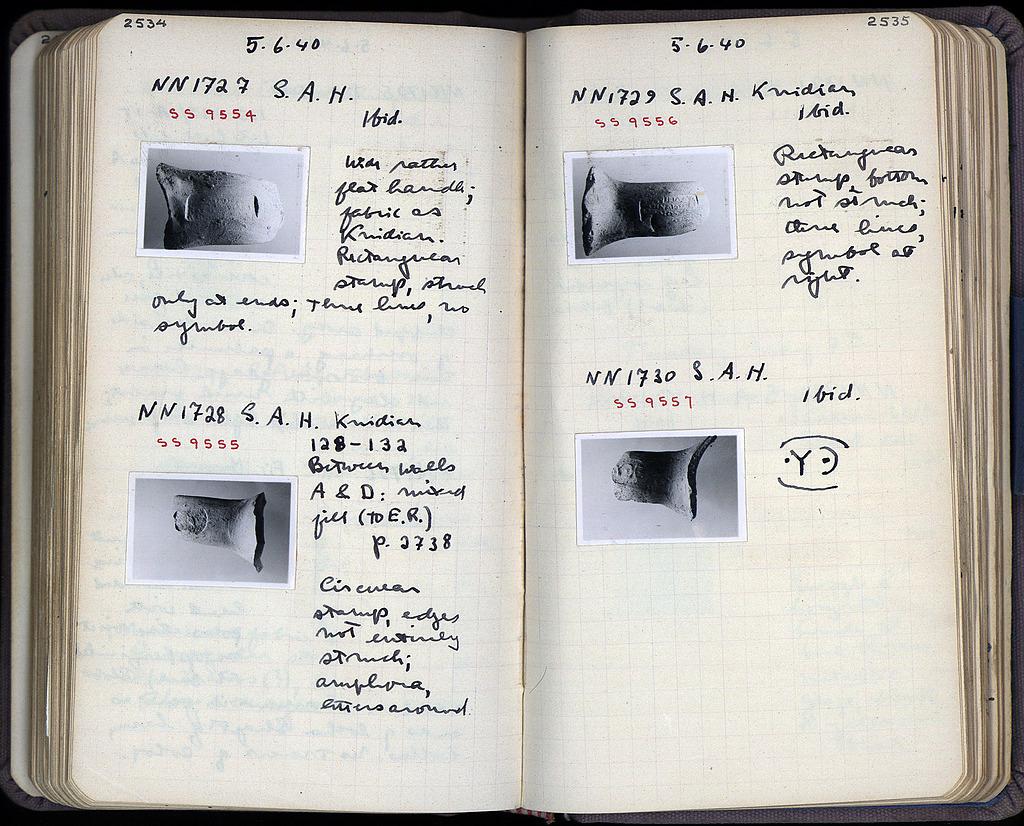 2534
5·6·40
NN1727 S.A.H.
SS 9554
Ibid.
Wide rather
flat handle;
fabric as
Knidian.
Rectangular
stamp, struck
only at ends; three lines, no
symbol.
NN1728 S.A.H. Knidian
SS 9555
128-132
Between walls
A & D: mixed
fill (to E.R.)
p. 2738
Circular
stamp, edges
not entirely
struck;
amphora,
letters around.
2535
5·6·40
NN1729 S.A.H. Knidian
SS 9556
Ibid.
Rectangular
stamp, bottom
not struck;
three lines,
symbol at
right.
NN1730 S.A.H.
SS 9557
Ibid.